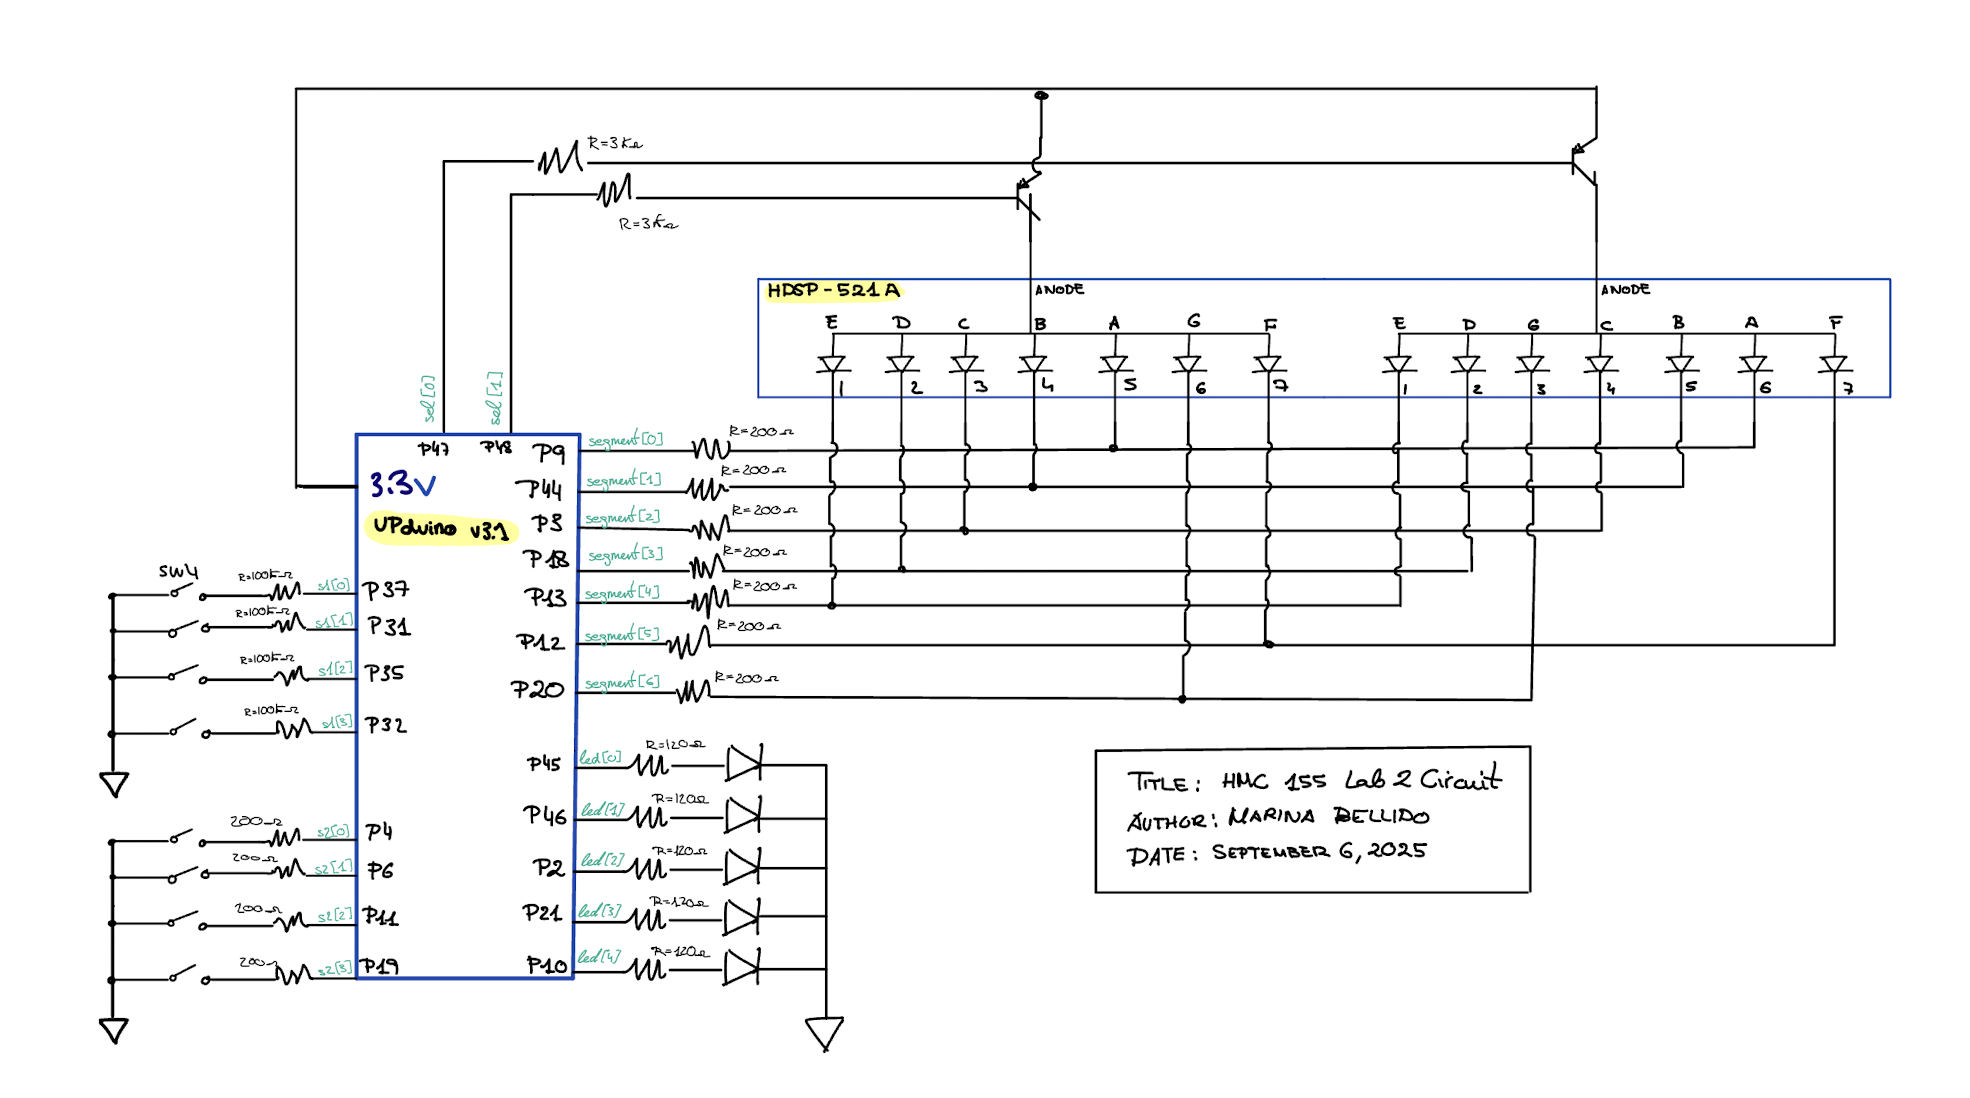 R=3KΩ
R=3KΩ
HDSP-521A
ANODE
ANODE
E D C B A G F
E D G C B A F
1 2 3 4 5 6 7
1 2 3 4 5 6 7
sel[0]
sel[1]
P47
P48
3.3V
UPduino v3.1
P9 segment[0] R=200Ω
P44 segment[1] R=200Ω
P3 segment[2] R=200Ω
P18 segment[3] R=200Ω
P13 segment[4] R=200Ω
P12 segment[5] R=200Ω
P20 segment[6] R=200Ω
SW4
R=100KΩ s1[0] P37
R=100KΩ s1[1] P31
R=100KΩ s1[2] P35
R=100KΩ s1[3] P32
200Ω s2[0] P4
200Ω s2[1] P6
200Ω s2[2] P11
200Ω s2[3] P19
P45 led[0] R=120Ω
P46 led[1] R=120Ω
P2 led[2] R=120Ω
P21 led[3] R=120Ω
P10 led[4] R=120Ω
TITLE: HMC 155 Lab 2 Circuit
AUTHOR: MARINA BELLIDO
DATE: SEPTEMBER 6, 2025